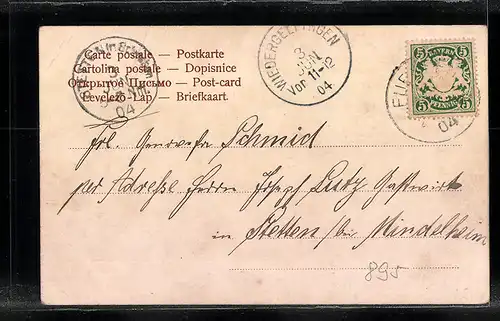 Carte postale — Postkarte
Cartolina postale — Dopisnice
Открытое Письмо — Post-card
Levelező-Lap — Briefkaart
04
WIEDERGELTINGEN
3
JUN
Vor 11-12
04
BAYERN
5 5
5 PFENNIG 5
04
Frl. Genovefa Schmid
per Adresse Herrn Josef Lutz Gastwirt
in Stetten bei Mindelheim
895